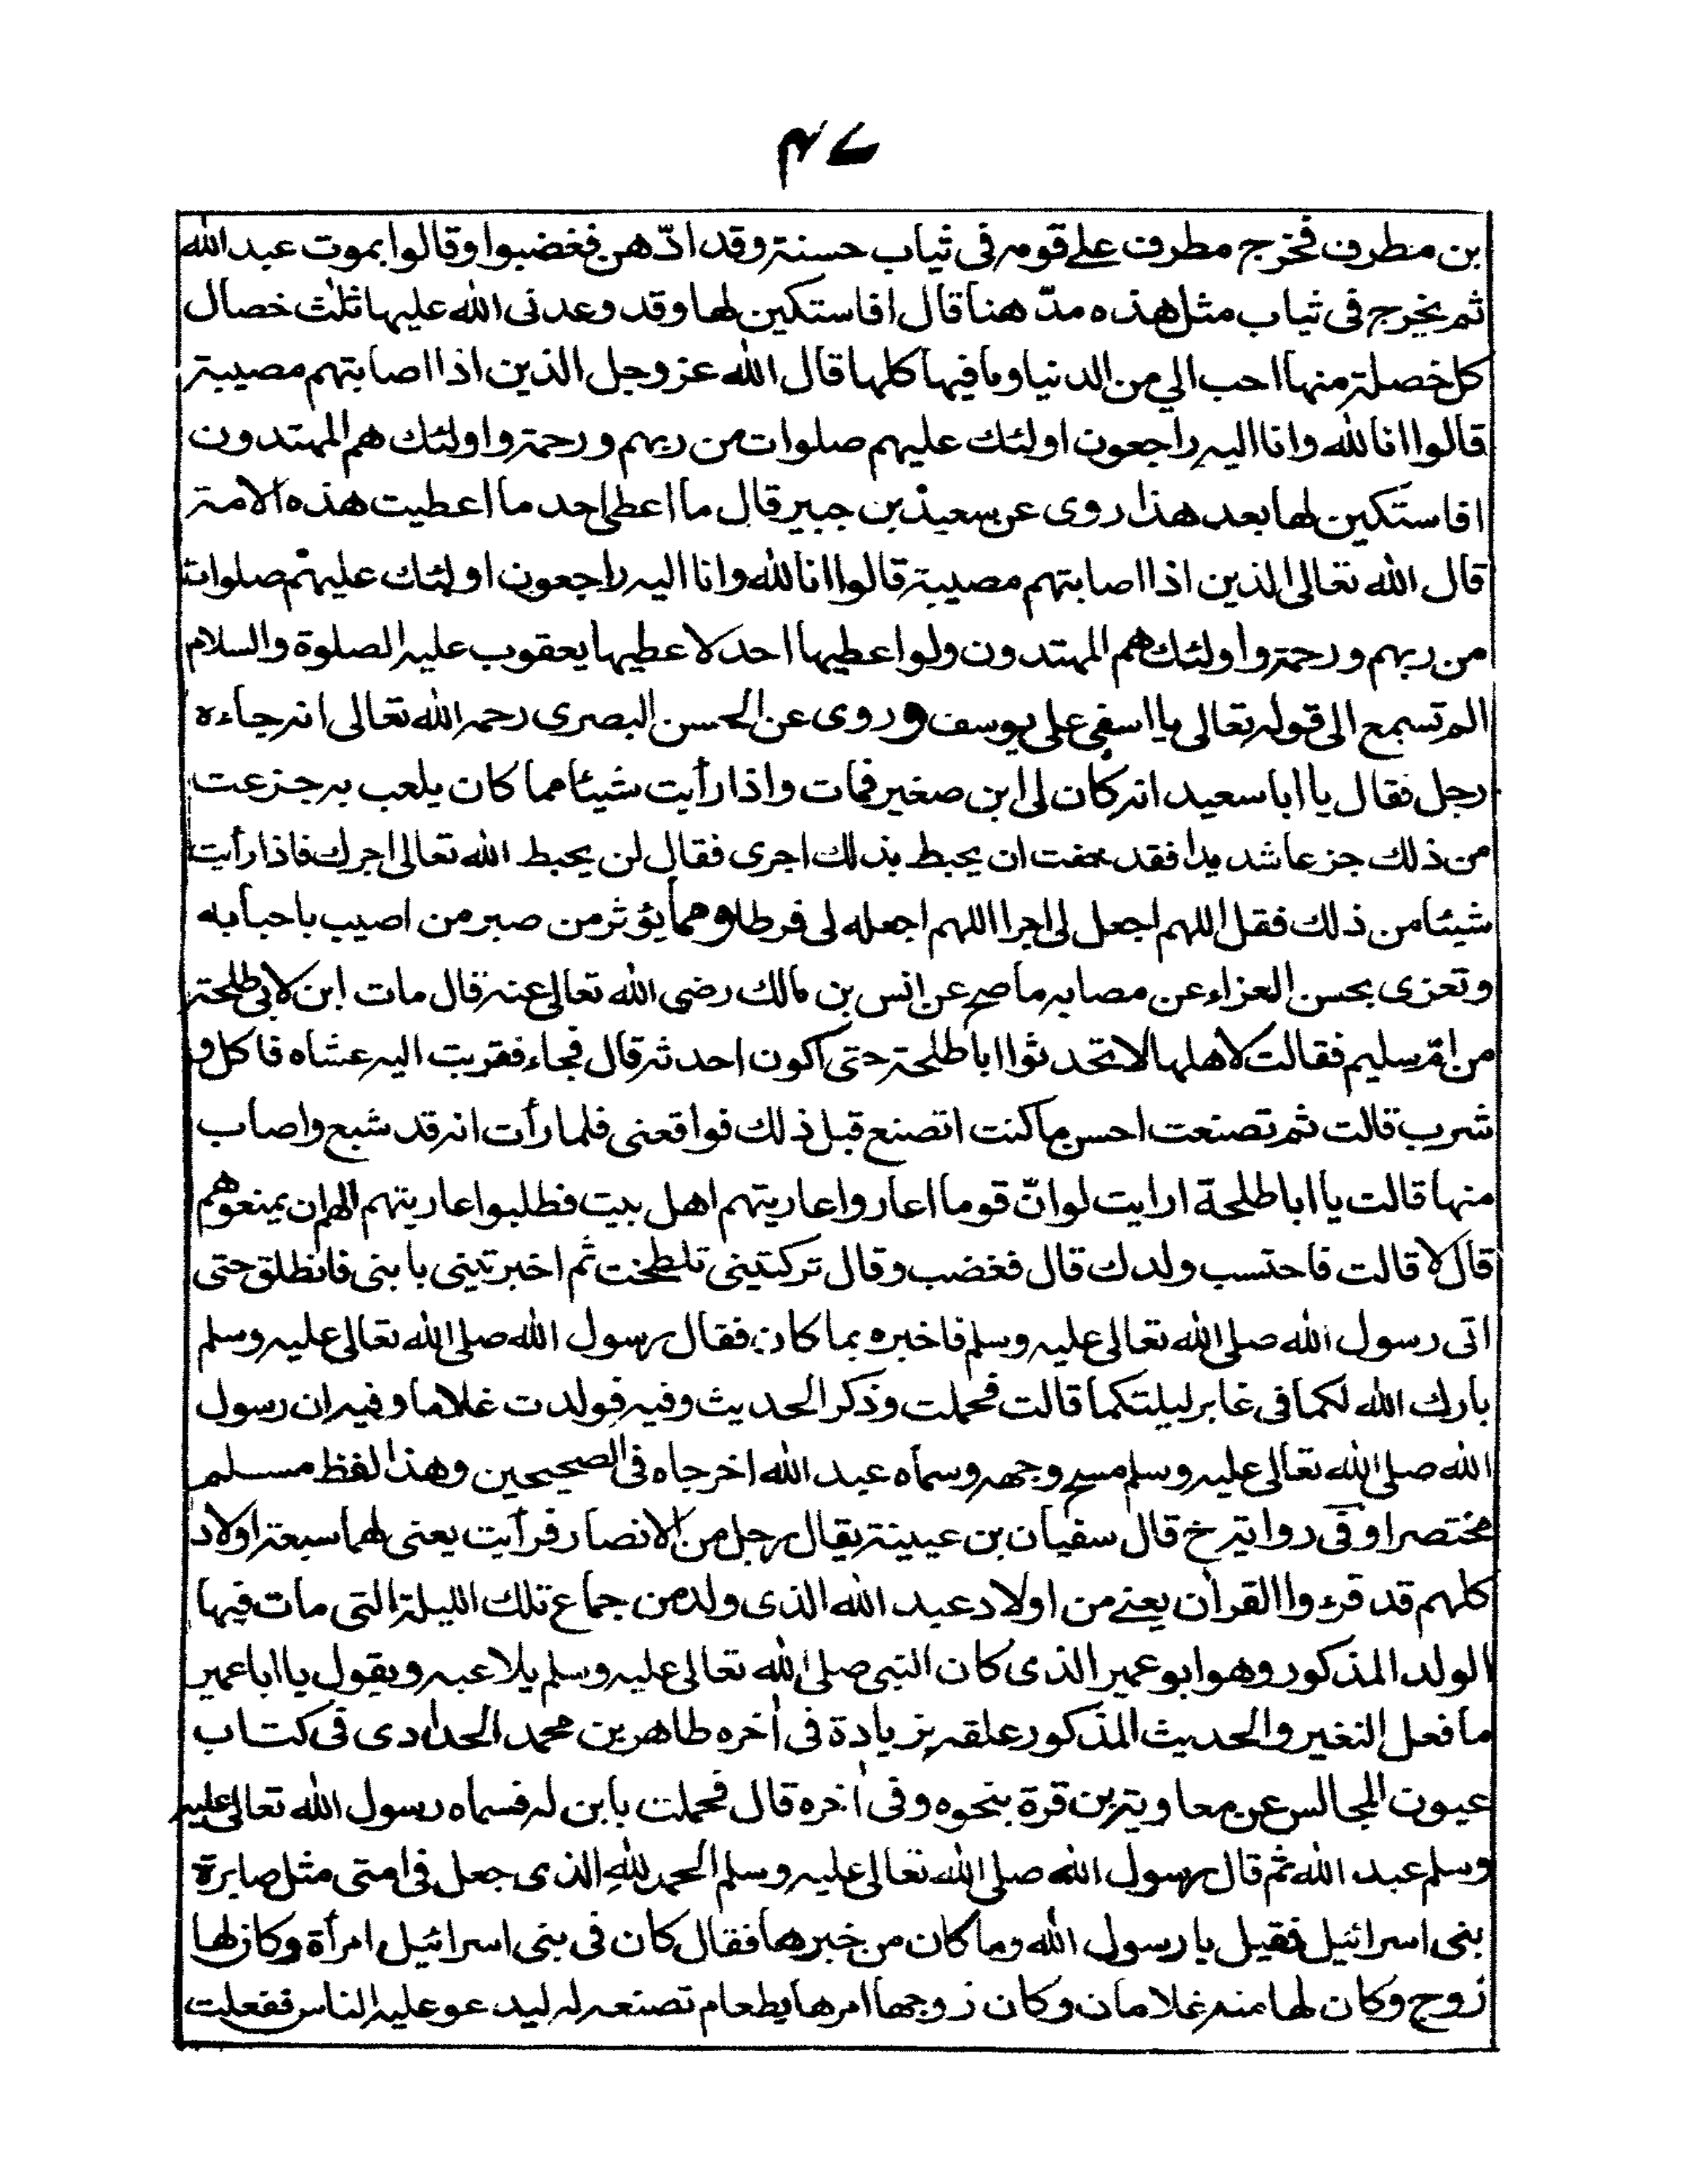 ۴۷
بن مطرف فخرج مطرف على قومه فى ثياب حسنة وقد ادّهن فغضبوا وقالوا بموت عبد الله
ثم يخرج فى ثياب مثل هذه مدّهنا قال افاستكين لها وقد وعدنى الله عليها ثلث خصال
كل خصلة منها احب الي من الدنيا وما فيها كلها قال الله عز وجل الذين اذا اصابتهم مصيبة
قالوا انا لله وانا اليه راجعون اولئك عليهم صلوات من ربهم ورحمة واولئك هم المهتدون
افاستكين لها بعد هذا روى عن سعيد بن جبير قال ما اعطى احد ما اعطيت هذه الامة
قال الله تعالى الذين اذا اصابتهم مصيبة قالوا انا لله وانا اليه راجعون اولئك عليهم صلوات
من ربهم ورحمة واولئك هم المهتدون ولو اعطيها احد لاعطيها يعقوب عليه الصلوة والسلام
الم تسمع الى قوله تعالى يا اسفى على يوسف وروى عن الحسن البصرى رحمه الله تعالى انه جاءه
رجل فقال يا ابا سعيد انه كان لى ابن صغير فمات واذا رأيت شيئا مما كان يلعب به جزعت
من ذلك جزعا شديدا فقد خفت ان يحبط بذلك اجرى فقال لن يحبط الله تعالى اجرك فاذا رأيت
شيئا من ذلك فقل اللهم اجعل لى اجرا اللهم اجعله لى فرطا ومما يؤثر من صبر من اصيب باحبابه
وتعزى بحسن العزاء عن مصابه ما صح عن انس بن مالك رضى الله تعالى عنه قال مات ابن لابى طلحة
من ام سليم فقالت لاهلها لا تحدثوا ابا طلحة حتى اكون احدثه قال فجاء فقربت اليه عشاه فاكل و
شرب قالت ثم تصنعت احسن ما كنت اتصنع قبل ذلك فواقعنى فلما رأت انه قد شبع واصاب
منها قالت يا ابا طلحة ارايت لو انّ قوما اعاروا عاريتهم اهل بيت فطلبوا عاريتهم الهم ان يمنعوهم
قال لا قالت فاحتسب ولدك قال فغضب وقال تركتينى تلطخت ثم اخبرتينى بابنى فانطلق حتى
اتى رسول الله صلى الله تعالى عليه وسلم فاخبره بما كان فقال رسول الله صلى الله تعالى عليه وسلم
بارك الله لكما فى غابر ليلتكما قالت فحملت وذكر الحديث وفيه فولدت غلاما وفيه ان رسول
الله صلى الله تعالى عليه وسلم مسح وجهه وسماه عبد الله اخرجاه فى الصحيحين وهذا لفظ مسلم
مختصرا وفى رواية خ قال سفيان بن عيينة يقال رجل من الانصار فرأيت يعنى لهما سبعة اولاد
كلهم قد قرءوا القران يعنے من اولاد عبد الله الذى ولد من جماع تلك الليلة التى مات فيها
الولد المذكور وهو ابو عمير الذى كان النبى صلى الله تعالى عليه وسلم يلاعبه ويقول يا ابا عمير
ما فعل النغير والحديث المذكور علقه بزيادة فى أخره طاهر بن محمد الحدادى فى كتاب
عيون المجالس عن معاوية بن قرة بنحوه وفى أخره قال فحملت بابن له فسماه رسول الله تعالى عليه
وسلم عبد الله ثم قال رسول الله صلى الله تعالى عليه وسلم الحمد لله الذى جعل فى امتى مثل صابرة
بنى اسرائيل فقيل يا رسول الله وما كان من خبرها فقال كان فى بنى اسرائيل امرأة وكان لها
زوج وكان لها منه غلامان وكان زوجها امرها بطعام تصنعه له ليدعو عليه الناس ففعلت